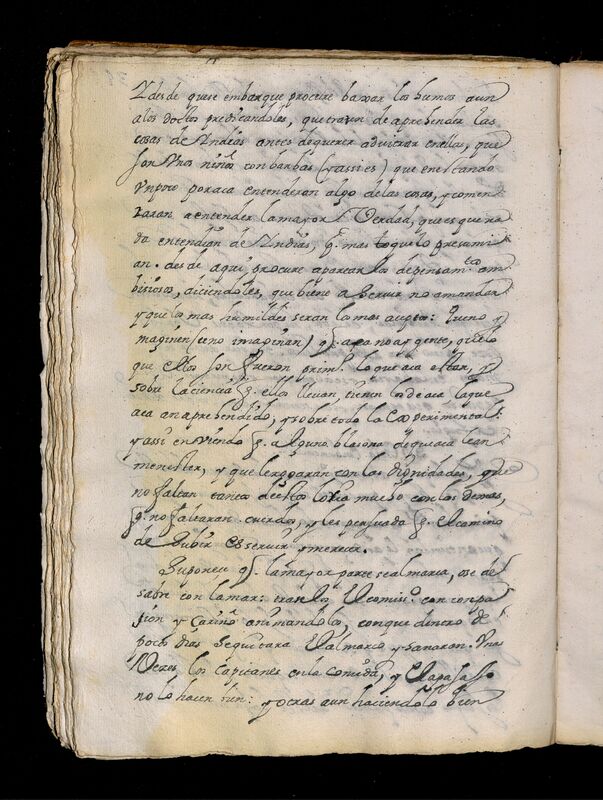 Y desde que se embarque procure baxar los humos aun
a los doctos predicandoles, que traten de aprehender las
cosas de Yndias antes de querer adviterar en ellas, que
son unos niños con barbas (y assi es) que en estando
un poco por aca entenderan algo de las cosas, y comen
zaran a entender la mayor Verdad, que es que na
da entendian de Yndias, q. mas to que lo presumi
an. desde aqui procure apartar los de pensam.tos am
bisiosos, diciendoles, que biene a servir no a mandar
y que los mas humildes seran los mas aceptos: Y no y
maginen (como imaginan) q. aca no ay gente, que lo
que ellos son fueron prim.o los que aca estan, y
sobre la ciencia q. ellos llevan, tienen los de aca, la que
aca an aprehendido, y sobre todo la experimental:
y assi en viendo q. alguno blasona de que aca le an
menester, y que le rogaran con las dignidades, que
no faltan tantos de estos lo ria mucho con los demas,
q. no faltaran cuerdos, y les persuada q. el camino
de subir es servir y merecer.
Suponese q. la mayor parte se almarea, o se de
sabre con la mar: tratelos el comiss.o con compa
sion y cariño animandolos, con que dentro de
pocos dias se quitara el almareo y sanaran. Unas
Vezes los capitanes en la comida, y el agasajo
no lo hacen bien: y otras aun haciendolo bien